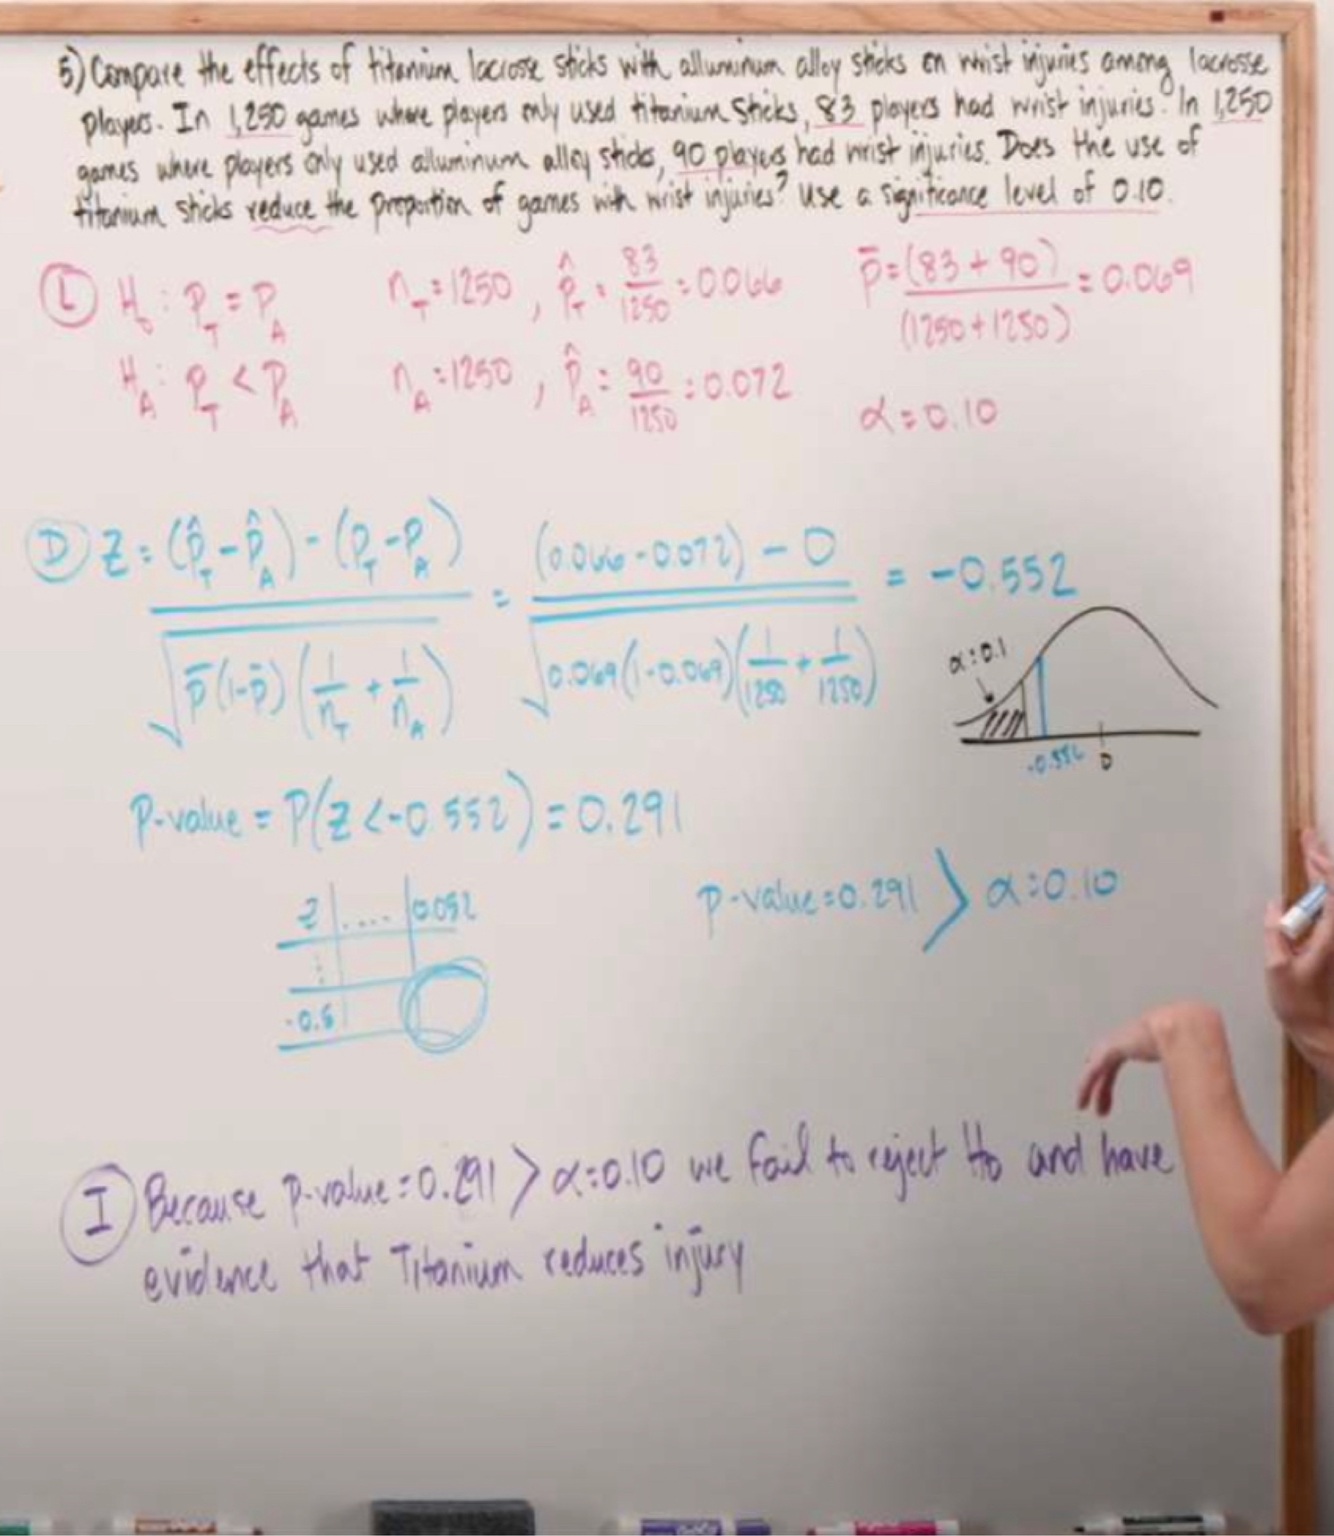 5) Compare the effects of titanium lacrosse sticks with alluminum alloy sticks on wrist injuries among lacrosse
players. In 1,250 games where players only used titanium sticks, 83 players had wrist injuries. In 1,250
games where players only used alluminum alloy sticks, 90 players had wrist injuries. Does the use of
titanium sticks reduce the proportion of games with wrist injuries? Use a significance level of 0.10.
I H₀: P_T = P_A n_T = 1250, p̂_T = 83/1250 = 0.066 p̄ = (83 + 90)/(1250 + 1250) = 0.069
H_A: P_T < P_A n_A = 1250, p̂_A = 90/1250 = 0.072 α = 0.10
D Z = ((p̂_T - p̂_A) - (P_T - P_A))/√(p̄(1-p̄)(1/n_T + 1/n_A)) = ((0.066 - 0.072) - 0)/√(0.069(1-0.069)(1/1250 + 1/1250)) = -0.552
α = 0.1
-0.552 0
P-value = P(Z < -0.552) = 0.291
Z .... 0.052
⋮
-0.5
p-value = 0.291 > α = 0.10
I Because p-value = 0.291 > α = 0.10 we fail to reject H₀ and have
evidence that Titanium reduces injury